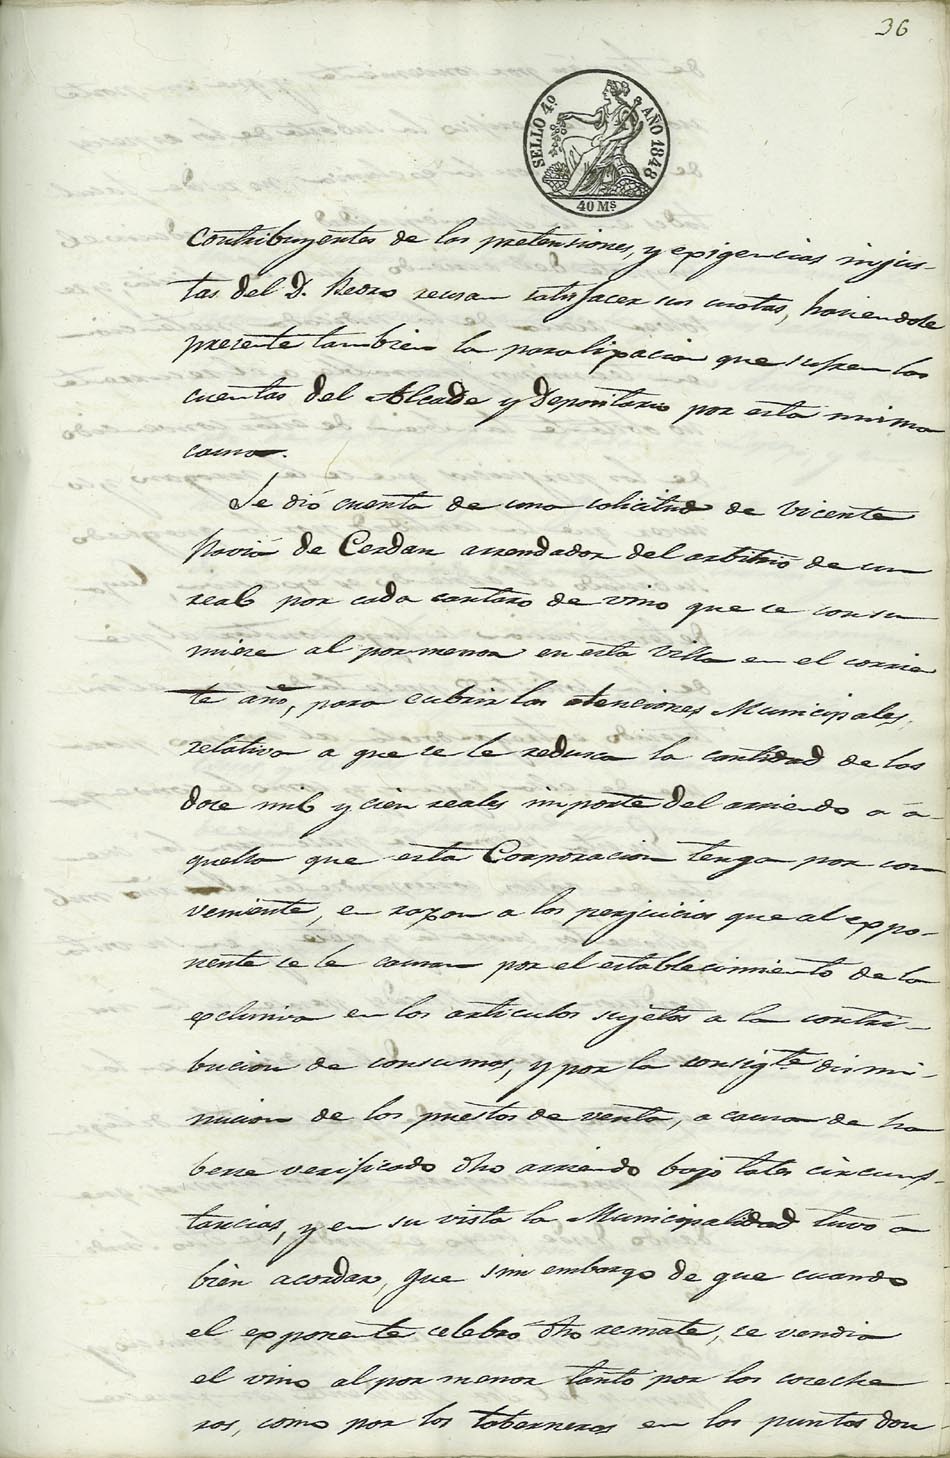 36
SELLO 4º AÑO 1848
40 Ms
Contribuyentes de las pretensiones, y exigencias injus-
tas del D. Pedro reusan satisfacer sus cuotas, haciendole
presente tambien la paralizacion que sufren las
cuentas del Alcalde y Depositario por esta misma
causa.
Se dió cuenta de una solicitud de Vicente
Pavia de Cerdan arrendador del arbitrio de un
real por cada cantaro de vino que se consu
miere al por menor en esta Villa en el corrien
te año, para cubrir las atenciones Municipales,
relativa a que se le reduzca la cantidad de los
doce mil y cien reales importe del arriendo a a-
quella que esta Corporacion tenga por con
veniente, en razon a los perjuicios que al expo-
nente se le causan por el establecimiento de la
exclusiva en los articulos sujetos a la contri-
bucion de consumos, y por la consigte dismi-
nucion de los puestos de venta, a causa de ha
berse verificado dho arriendo bajo tales circuns-
tancias, y en su vista la Municipalidad tuvo a
bien acordar, que sin embargo de que cuando
el exponente celebró dho remate, se vendia
el vino al por menor tanto por los coseche
ros, como por los taberneros en los puntos don